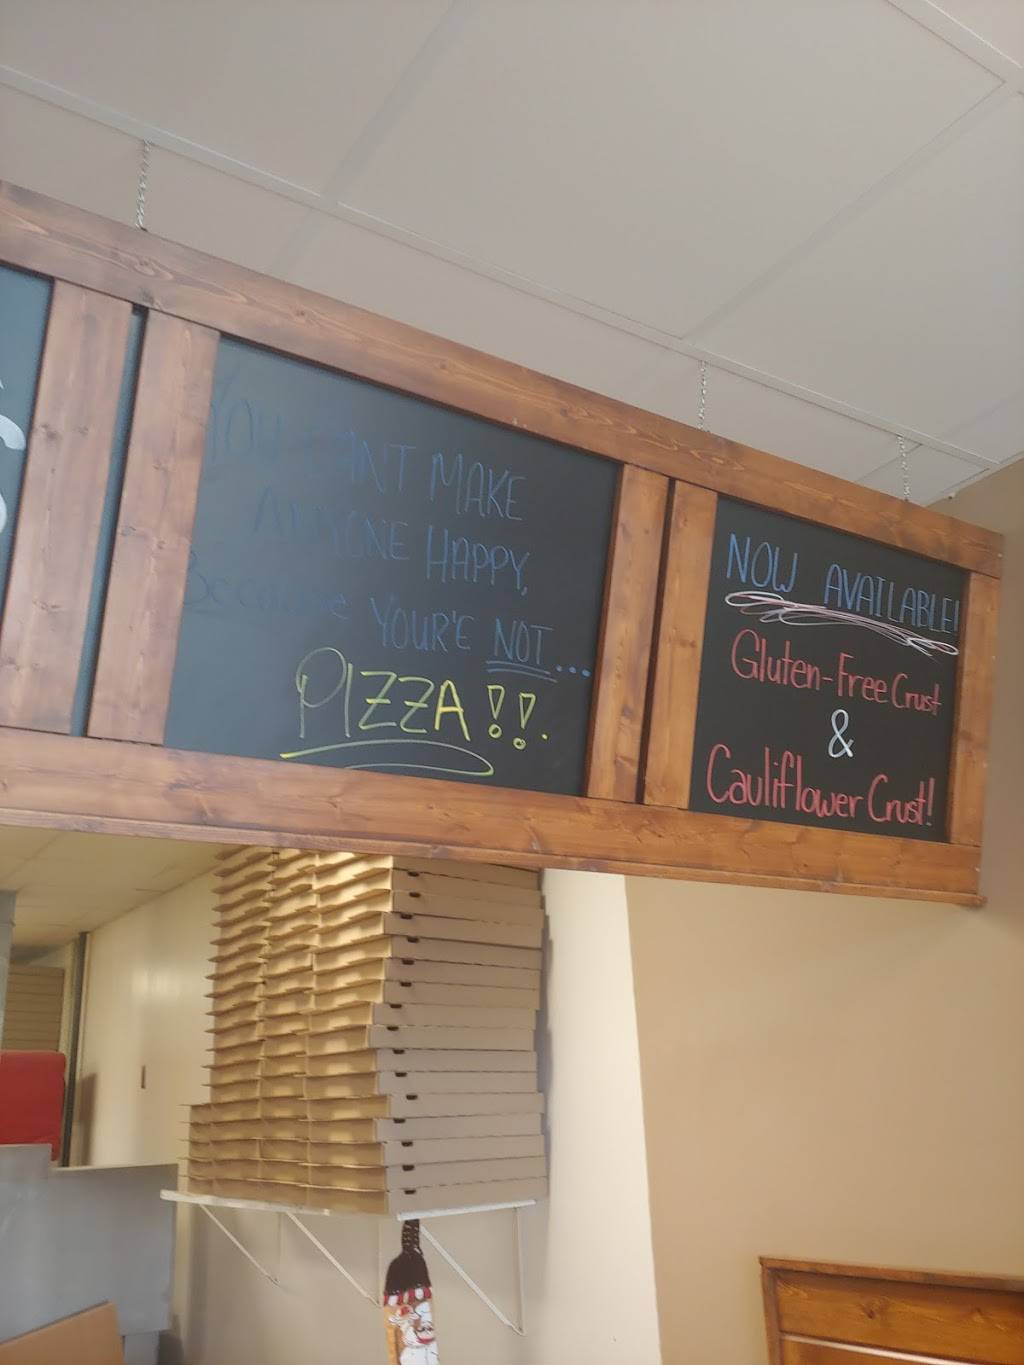 YOU CAN'T MAKE
ANYONE HAPPY,
Because YOUR'E NOT...
PIZZA!!.
NOW AVAILABLE!
Gluten-Free Crust
&
Cauliflower Crust!